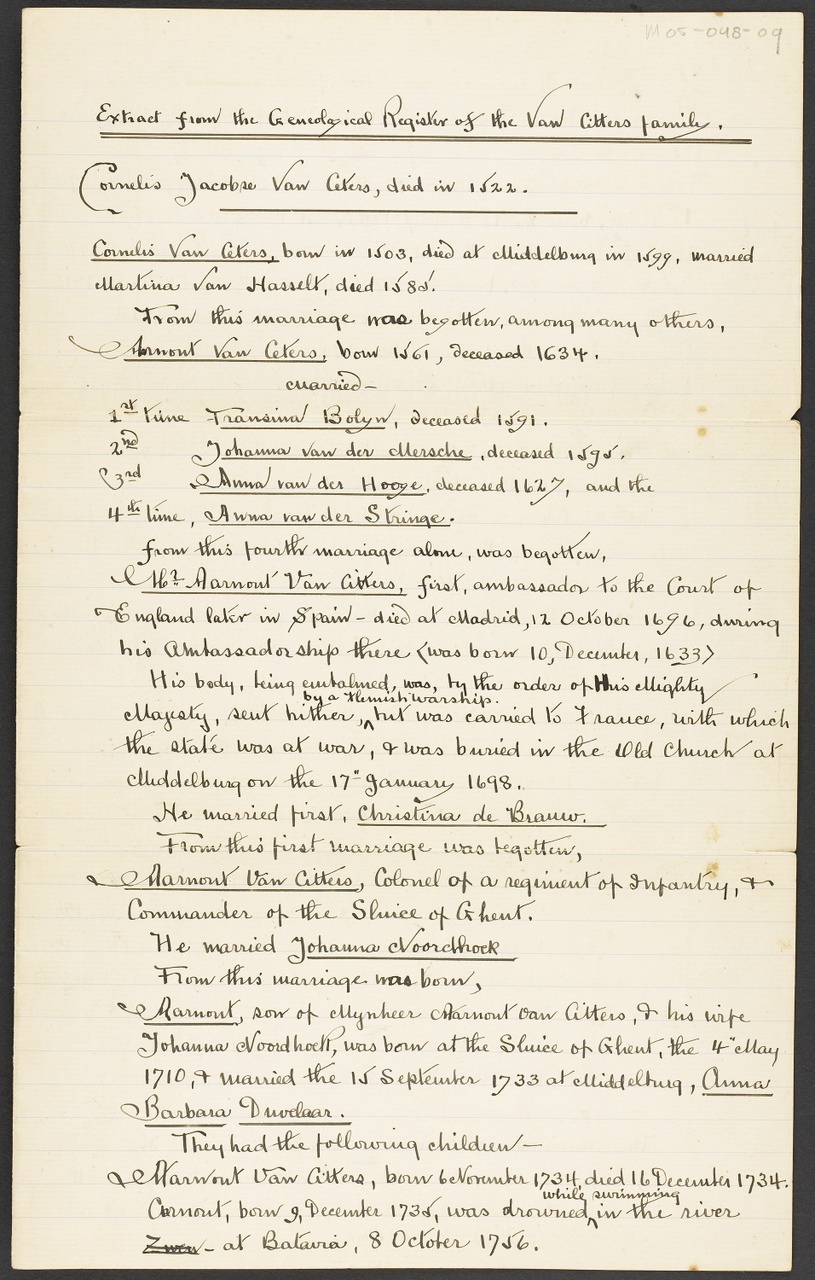 M05-048-09
Extract from the Geneological Register of the Van Citters family.
Cornelis Jacobse Van Ceters, died in 1522.
Cornelis Van Ceters, born in 1503, died at Middelburg in 1599, married
Martina Van Hasselt, died 1585.
From this marriage was begotten, among many others,
Arnout Van Ceters, born 1561, deceased 1634.
married—
1st time Fransina Bolyn, deceased 1591.
2nd Johanna van der Mersche, deceased 1595.
3rd Anna van der Hooge, deceased 1627, and the
4th time, Anna van der Stringe.
from this fourth marriage alone, was begotten,
Mr. Aarnout Van Citters, first, ambassador to the Court of
England later in Spain - died at Madrid, 12 October 1696, during
his Ambassadorship there (was born 10, December, 1633)
His body, being embalmed, was, by the order of His Mighty
by a Flemish Warship.
Majesty, sent hither, ^ but was carried to France, with which
the state was at war, & was buried in the Old Church at
Middelburg on the 17" January 1698.
He married first, Christina de Brauw.
From this first marriage was begotten,
Aarnout Van Citters, Colonel of a regiment of Infantry, &
Commander of the Sluice of Ghent.
He married Johanna Noordhoek
From this marriage was born,
Aarnout, son of Mynheer Aarnout van Citters, & his wife
Johanna Noordhoek, was born at the Sluice of Ghent, the 4" May
1710, & married the 15 September 1733 at Middelburg, Anna
Barbara Duvelaar.
They had the following children—
Aarnout Van Citters, born 6 November 1734, died 16 December 1734.
while swimming
Arnout, born 9, December 1735, was drowned ^ in the river
Zwen - at Batavia, 8 October 1756.